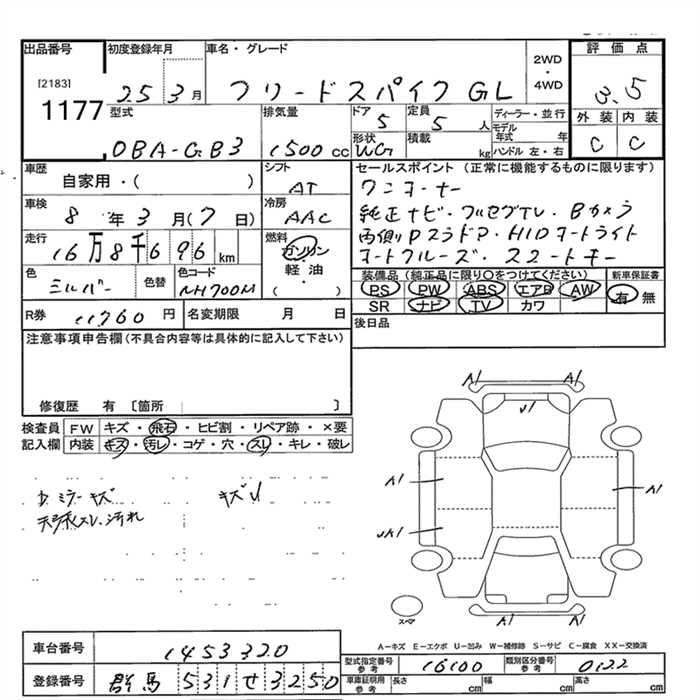 出品番号 初度登録年月 車名・グレード 2WD・4WD 評価点
[2183] 1177 25 3月 フリードスパイク GL 3.5
型式 排気量 ドア 5 定員 5人 ディーラー・並行 外装 内装
DBA-GB3 1500cc 形状 WG 積載 kg モデル年式 年 ハンドル 左・右 C C
車歴 シフト セールスポイント (正常に機能するものに限ります)
自家用・( ) AT ワンオーナー
車検 冷房 純正ナビ・フルセグTV・Bカメラ
8年3月(7日) AAC 両側Pスラドア・HIDオートライト
走行 燃料 オートクルーズ・スマートキー
16万8千696km ガソリン・軽油・( )
色 色替 色コード 装備品 (純正品に限り〇をつけてください) 新車保証書
シルバー NH700M PS PW ABS エアB AW 有 無
SR ナビ TV カワ
R券 11760円 名変期限 月 日 後日品
注意事項申告欄(不具合内容等は具体的に記入して下さい)
修復歴 有 〔箇所 〕
検査員 FW キズ・飛石・ヒビ割・リペア跡・×要
記入欄 内装 キズ・汚レ・コゲ・穴・スレ・キレ・破レ
A1 A1
U1
A1 A1
A1 A1
スペア
A-キズ E-エクボ U-凹み W-補修跡 S-サビ C-腐食 XX-交換済
車台番号 1453320 型式指定番号 参考 16100 類別区分番号 参考 0122
登録番号 群馬 531 せ 3250 車庫証明用 参考 長さ cm 幅 cm 高さ cm